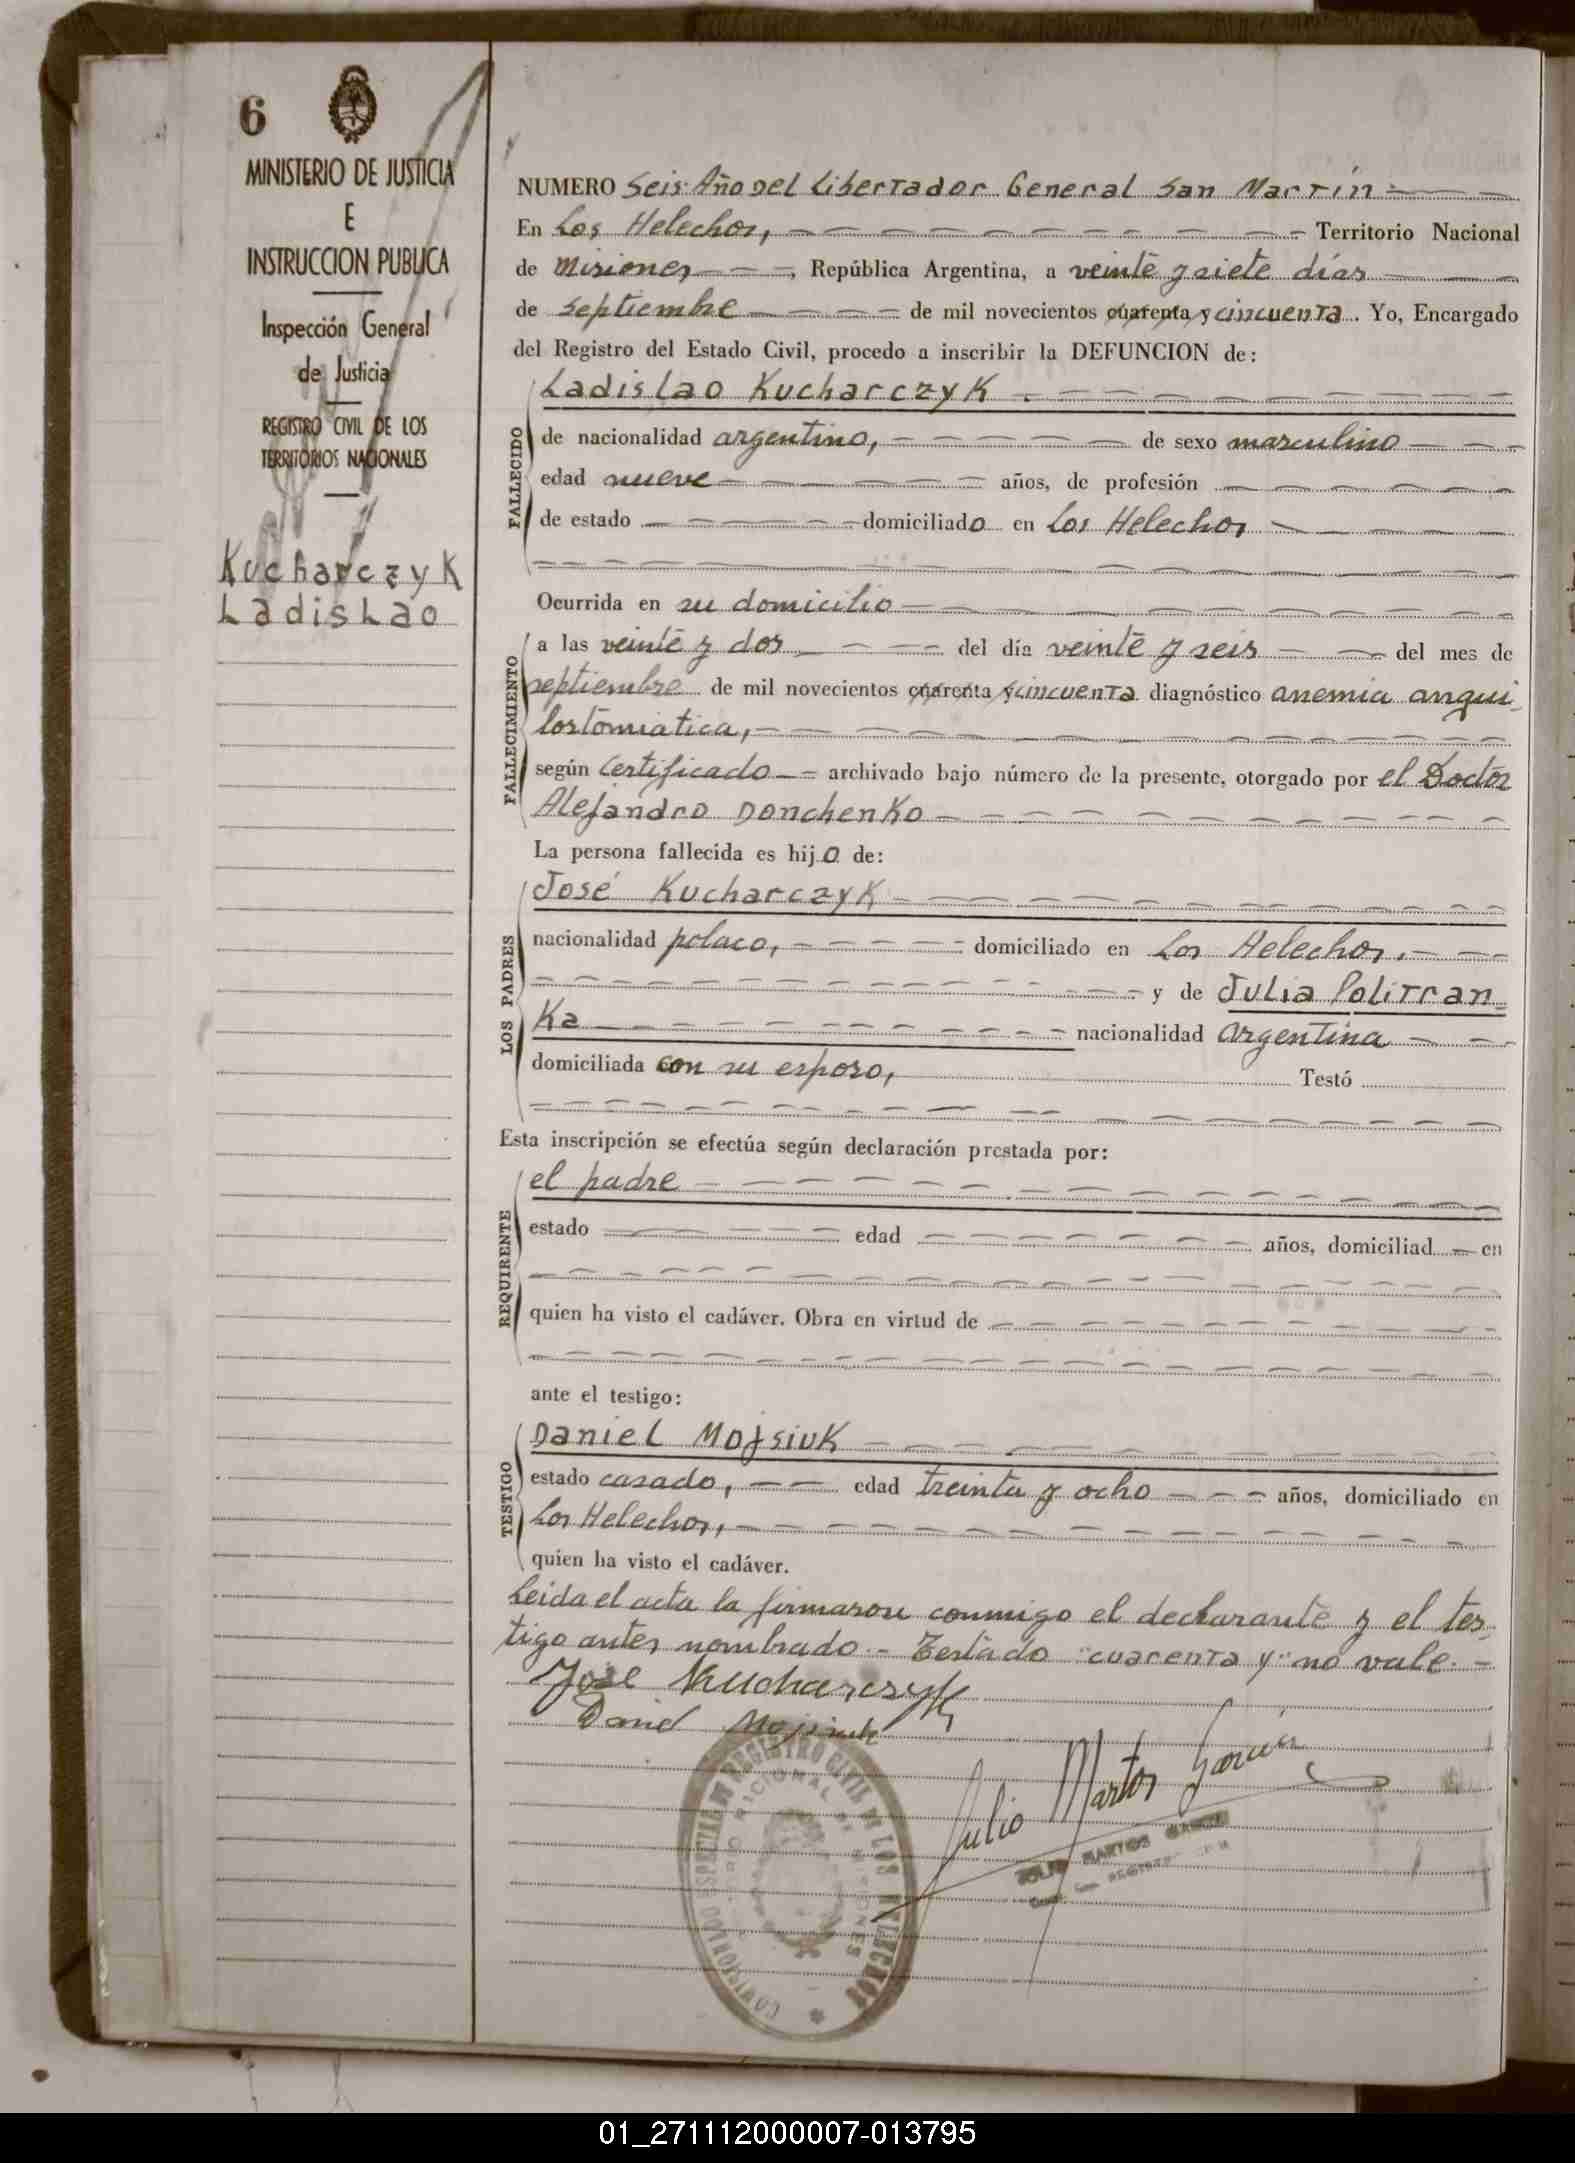 6
MINISTERIO DE JUSTICIA
E
INSTRUCCION PUBLICA
Inspección General
de Justicia
REGISTRO CIVIL DE LOS
TERRITORIOS NACIONALES
Kucharczyk
Ladislao
NUMERO Seis. Año del Libertador General San Martín
En Los Helechos, Territorio Nacional
de Misiones, República Argentina, a veinte y siete días
de septiembre de mil novecientos cuarenta y cincuenta. Yo, Encargado
del Registro del Estado Civil, procedo a inscribir la DEFUNCION de:
FALLECIDO
Ladislao Kucharczyk.
de nacionalidad argentino, de sexo masculino
edad nueve años, de profesión
de estado domiciliado en Los Helechos
Ocurrida en su domicilio
FALLECIMIENTO
a las veinte y dos del día veinte y seis del mes de
septiembre de mil novecientos cuarenta y cincuenta diagnóstico anemia anqui-
lostomiatica,
según certificado archivado bajo número de la presente, otorgado por el Doctor
Alejandro Donchenko
La persona fallecida es hijo de:
LOS PADRES
José Kucharczyk
nacionalidad polaco, domiciliado en Los Helechos,
y de Julia Politran-
Ka nacionalidad argentina
domiciliada con su esposo, Testó
Esta inscripción se efectúa según declaración prestada por:
REQUIRENTE
el padre
estado edad años, domiciliad en
quien ha visto el cadáver. Obra en virtud de
ante el testigo:
TESTIGO
Daniel Mojsiuk
estado casado, edad treinta y ocho años, domiciliado en
Los Helechos,
quien ha visto el cadáver.
Leida el acta la firmaron conmigo el declarante y el tes-
tigo antes nombrado.- Testado "cuarenta y" no vale.-
Jose Kucharczyk
Daniel Mojsiuk
Julio Martos García
JULIO MARTOS GARCIA
COMISARIADO ESPECIAL DE REGISTRO CIVIL DE LOS HELECHOS
01_271112000007-013795